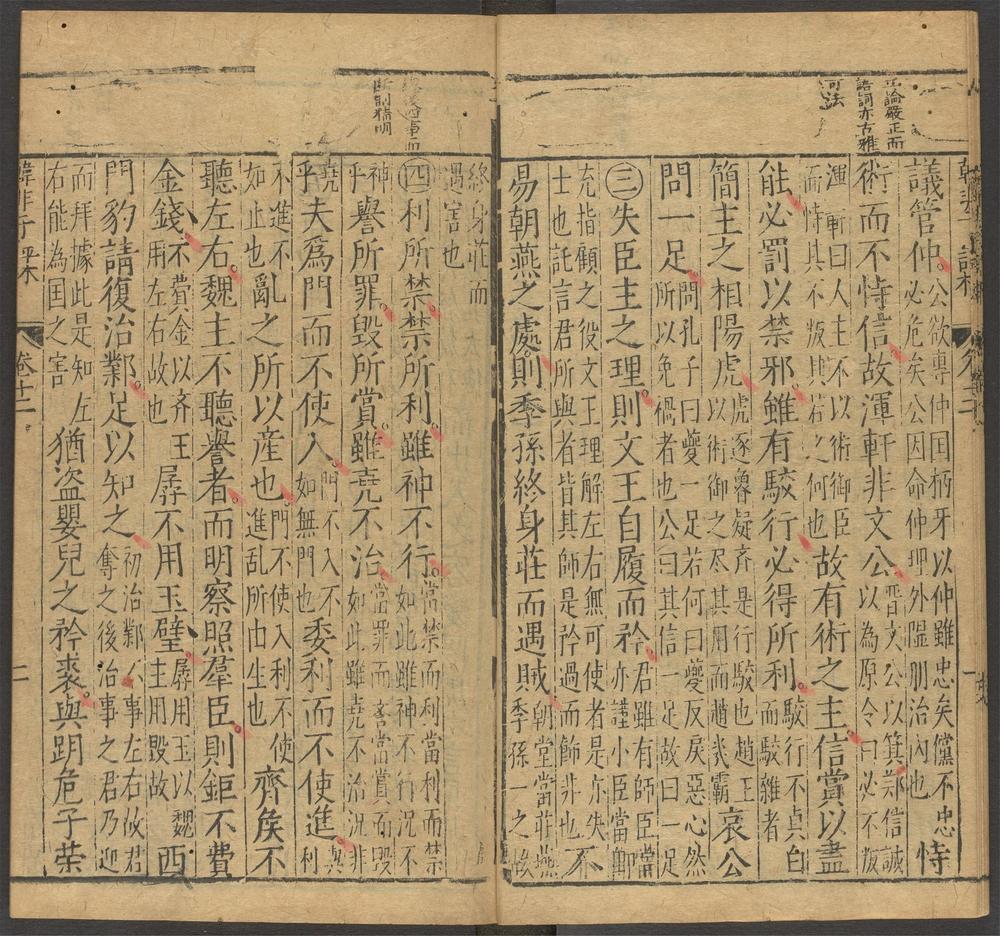 立論嚴正而
語詞亦古雅
可法
議管仲。公欲專仲国柄牙以仲雖忠矣儻不忠必危矣公因命仲理外隰朋治內也恃
術而不恃信故渾軒非文公晉文公以箕鄭信誠以為原令曰必不叛
渾軒曰人主不以術御臣而恃其不叛其若之何也故有術之主信賞以盡
能必罰以禁邪雖有駁行必得所利。駁行不貞白而駁雜者
簡主之相陽虎虎逐魯疑齐是行駁也趙王以術御之尽其用而趙㡬霸哀公
問一足。問孔子曰夔一足若何曰夔反戾惡心然所以免禍者也公曰其信一足故曰一足
㊂失臣主之理則文王自履而矜君雖有師臣當亦謹小臣當勳
充指顧之役文王理解左右無可使者是亦失士也託言君所與者皆其師是矜過而飾非也不
易朝燕之處則季孫終身莊而遇賊朝堂當莊燕季孫一之故
四事而
斷制精明
終身莊而遇害也
㊃利所禁禁所利雖神不行當禁而利當利而禁如此雖神不行况不
神乎譽所罪毀所賞雖堯不治當罪而譽當賞而毀如此雖堯不治况非
堯乎夫爲門而不使入。門不入不如無門也委利而不使進。與利
不進不如止也亂之所以産也。門不使入利不使進乱所由生也齊矦不
聽左右。魏主不聽譽者。而明察照羣臣。則鉅不費
金錢不費金以齐王用左右故也孱不用玉璧孱用玉以魏主用毀故西
門豹請復治鄴。足以知之初治鄴不事左右故君奪之後治事之君乃迎
而拜據此是知左右能為国之害猶盗嬰兒之矜裘。與跀危子荣
卷十二
二